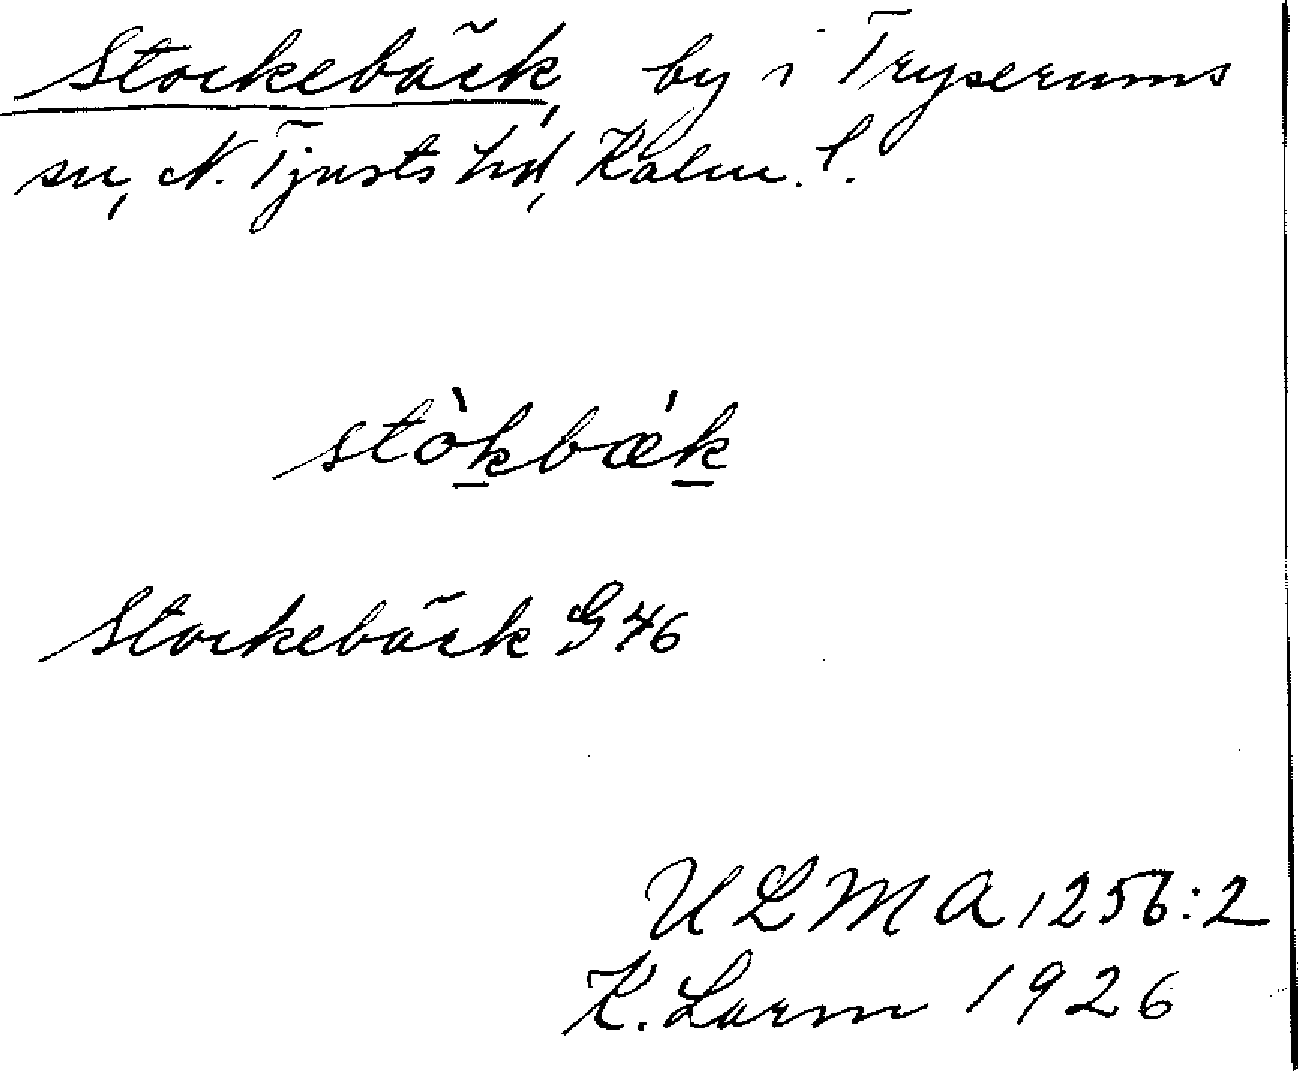 Stockebäck, by i Tryserums
sn, N. Tjusts hd, Kalm. l.
stòkbǽk
Stockebäck G 46
ULMA 1256:2
K. Lorm 1926